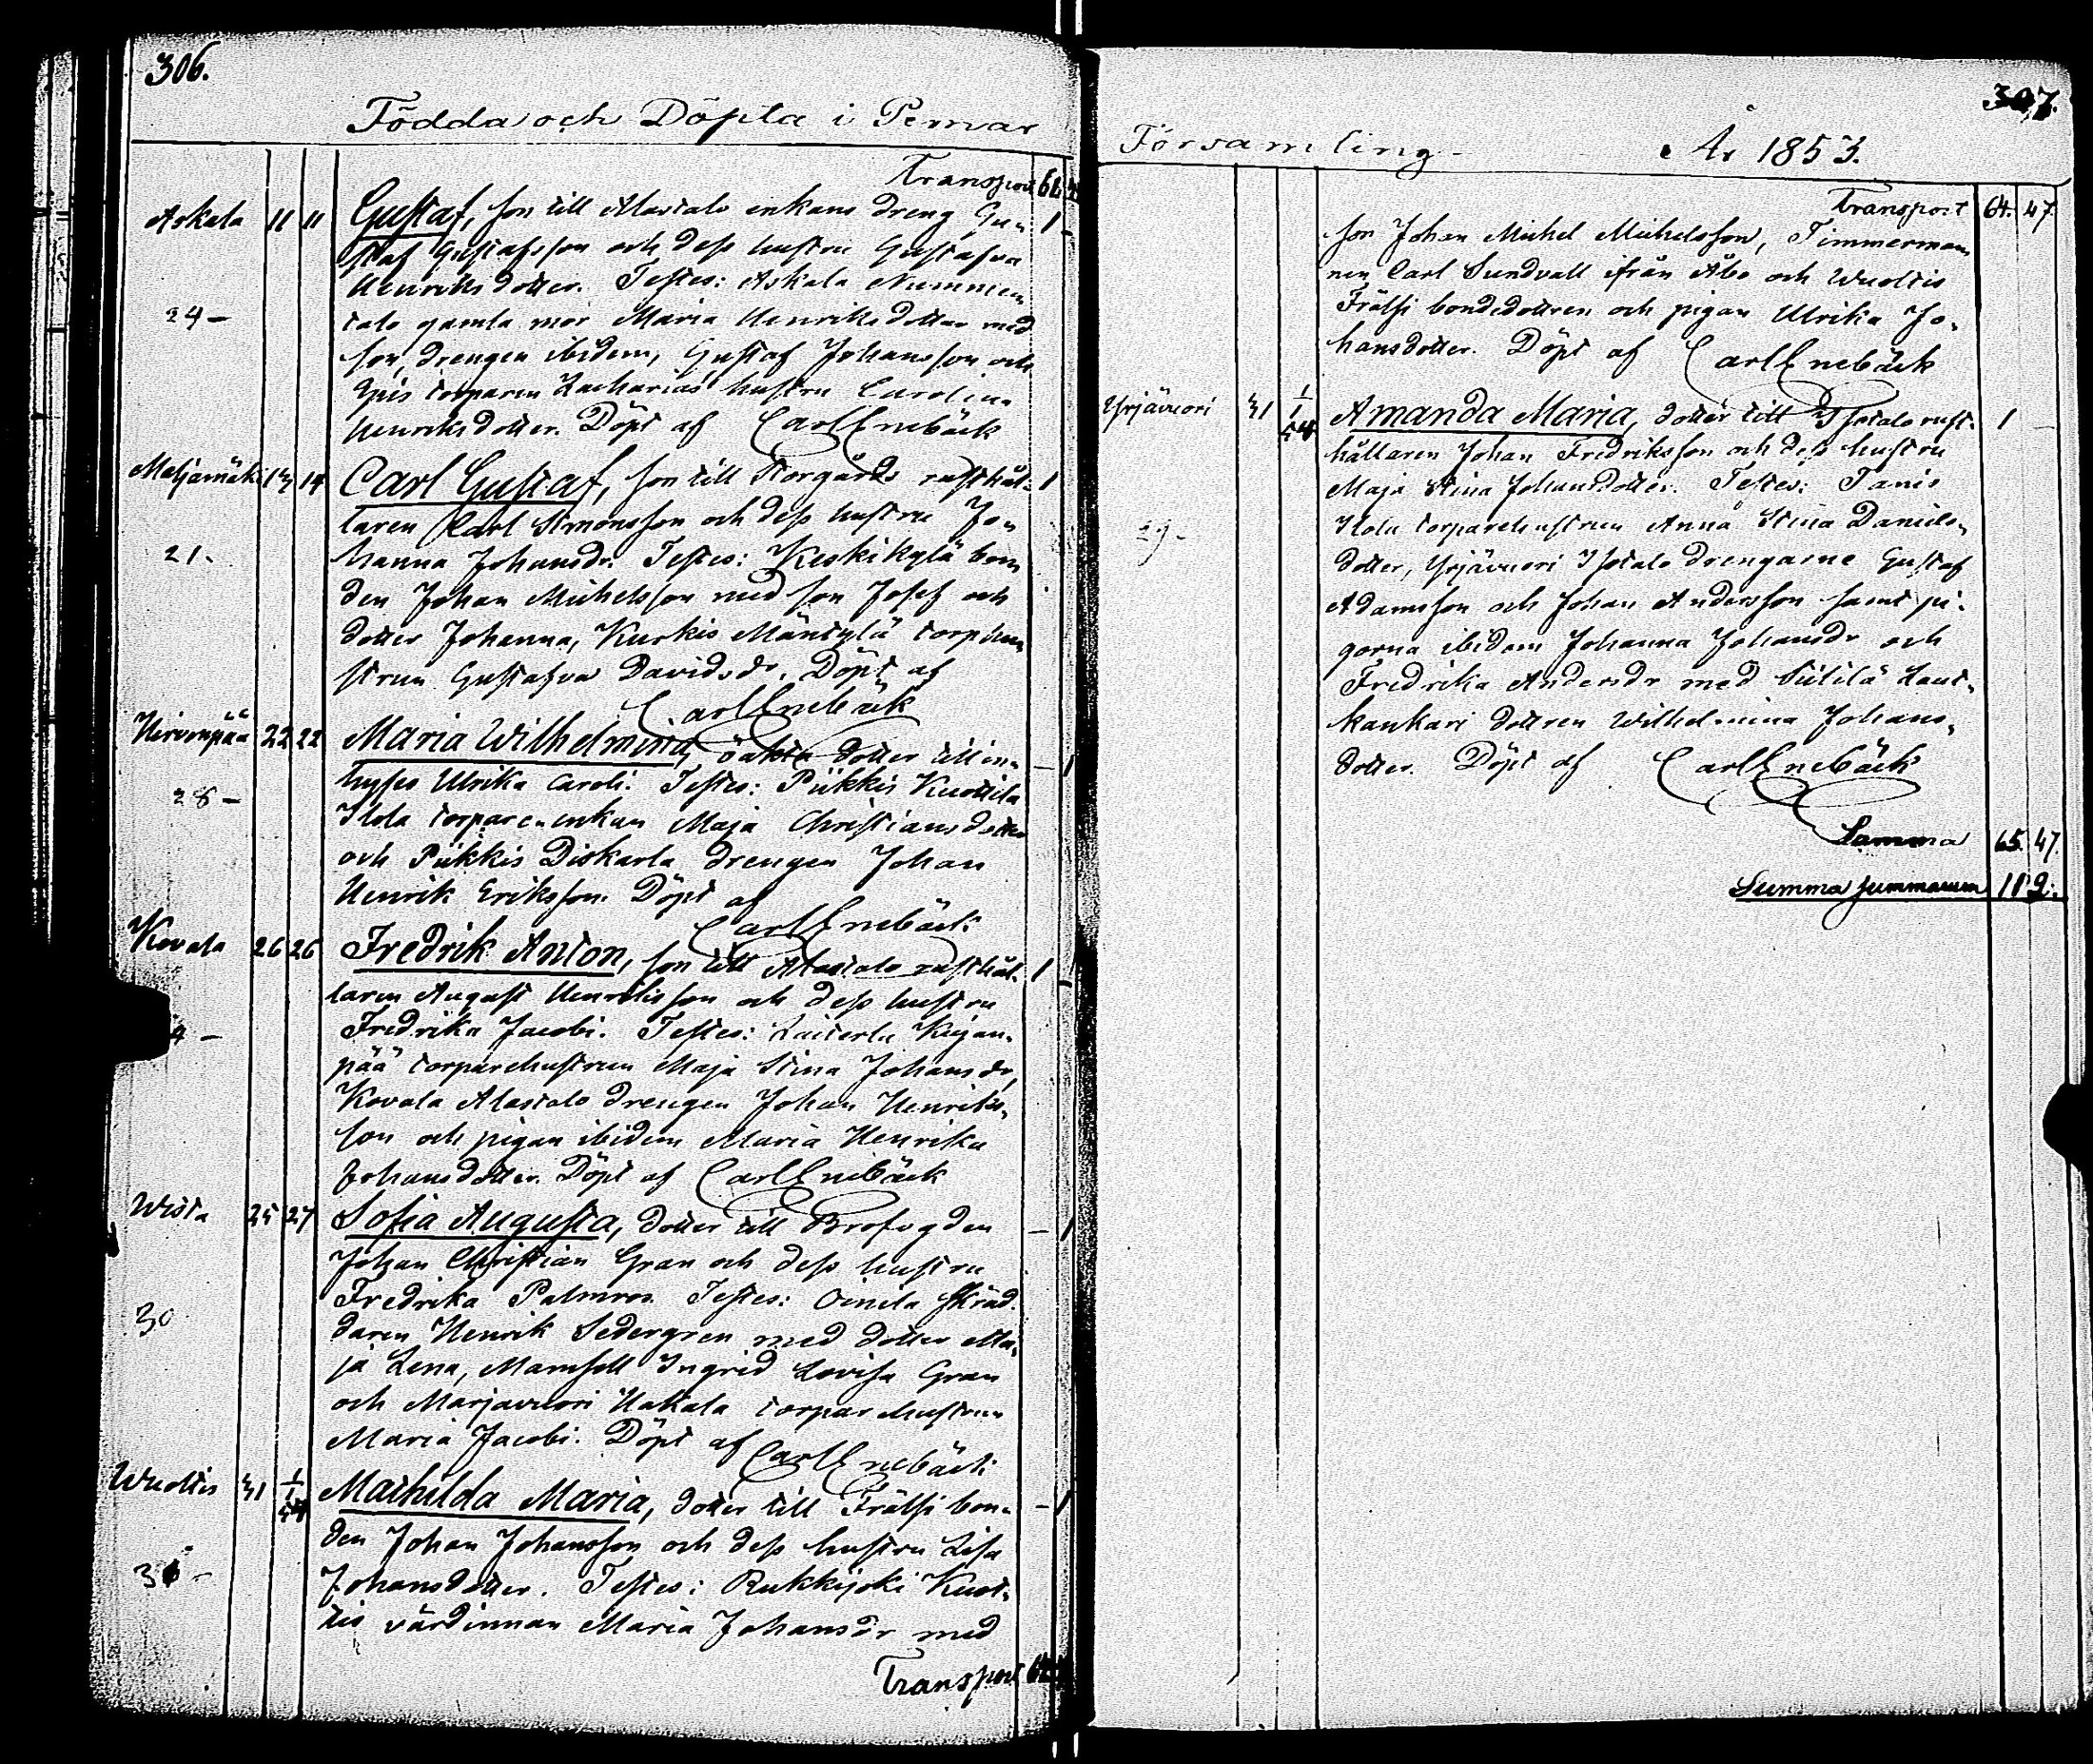 306.
Födda och Döpta i Pemar
Transport 61
Askala 11 11 Gustaf, son till Alastalo enkans dreng Gu- 1 -
staf Gustafsson och dess hustru Gustafva
Henriksdotter. Testes: Askala Nummen
24 - talo gamla mor Maria Henriksdotter med
son, drengen ibidem, Gustaf Johansson och
torparen Zacharias hustru Carolina
Henriksdotter. Döpt af Carl Enebäck
Meljamäki 13 14 Carl Gustaf, son till Storgårds rusthål- 1
laren Carl Simonsson och dess hustru Jo-
21. hanna Johansdr. Testes: Keskikylä bon
den Johan Michelsson med son Josef och
dotter Johanna, Kurkis Mäntylä torpehu
strun Gustafva Davidsdr. Döpt af
Carl Enebäck
Hirvonpää 22 22 Maria Wilhelmina, oäkta dotter till in- - 1
hyses Ulrika Caroli. Testes: Pikkis Kuottila
28 - Ilola torpare-enkan Maja Christiansdotter
och Pikkis Diskarla drengen Johan
Henrik Eriksson. Döpt af
Carl Enebäck
Kovala 26 26 Fredrik Anton, son till Alastalo rusthål- 1 -
laren August Henriksson och dess hustru
4 - Fredrika Jacobi. Testes: Laiterla Kujan-
pää torparehustrun Maja Stina Johansdr,
Kovala Alastalo drengen Johan Henriks-
son och pigan ibidem Maria Henrika
Johansdotter. Döpt af Carl Enebäck
Wista 25 27 Sofia Augusta, dotter till Brofogden - 1
Johan Christian Gran och dess hustru
30 Fredrika Palmros. Testes: Oinila skräd-
daren Henrik Sedergren med dotter Ma-
ja Lena, Mamsell Ingrid Lovisa Gran
och Marjavuori Hakala torparehustrun
Maria Jacobi. Döpt af Carl Enebäck
Wuoltis 31 1/1 54 Mathilda Maria, dotter till Frälsi bon- - 1
den Johan Johansson och dess hustru Lisa
31 - Johansdotter. Testes: Rukkijoki Kuot-
tis värdinnan Maria Johansdr med
Transport
307.
Församling År 1853.
Transport 64. 47.
son Johan Michel Michelsson, Timmerman
nen Carl Sundvall ifrån Åbo och Wuoltis
Frälsi bondedottren och pigan Ulrika Jo-
hansdotter. Döpt af Carl Enebäck
Yrjävuori 31 1/1 54 Amanda Maria, dotter till Isotalo rust- 1 -
hållaren Johan Fredriksson och dess hustru
Maja Stina Johansdotter. Testes: Tanis
29 - Ilola torparehustrun Anna Stina Daniels-
dotter, Yrjävuori Isotalo drengarne Gustaf
Adamsson och Johan Andersson samt pi-
gorna ibidem Johanna Johansdr och
Fredrika Andersdr med Siitilä Laut-
kankari dottren Wilhelmina Johans-
dotter. Döpt af Carl Enebäck
Summa 65. 47.
Summa summarum 112.